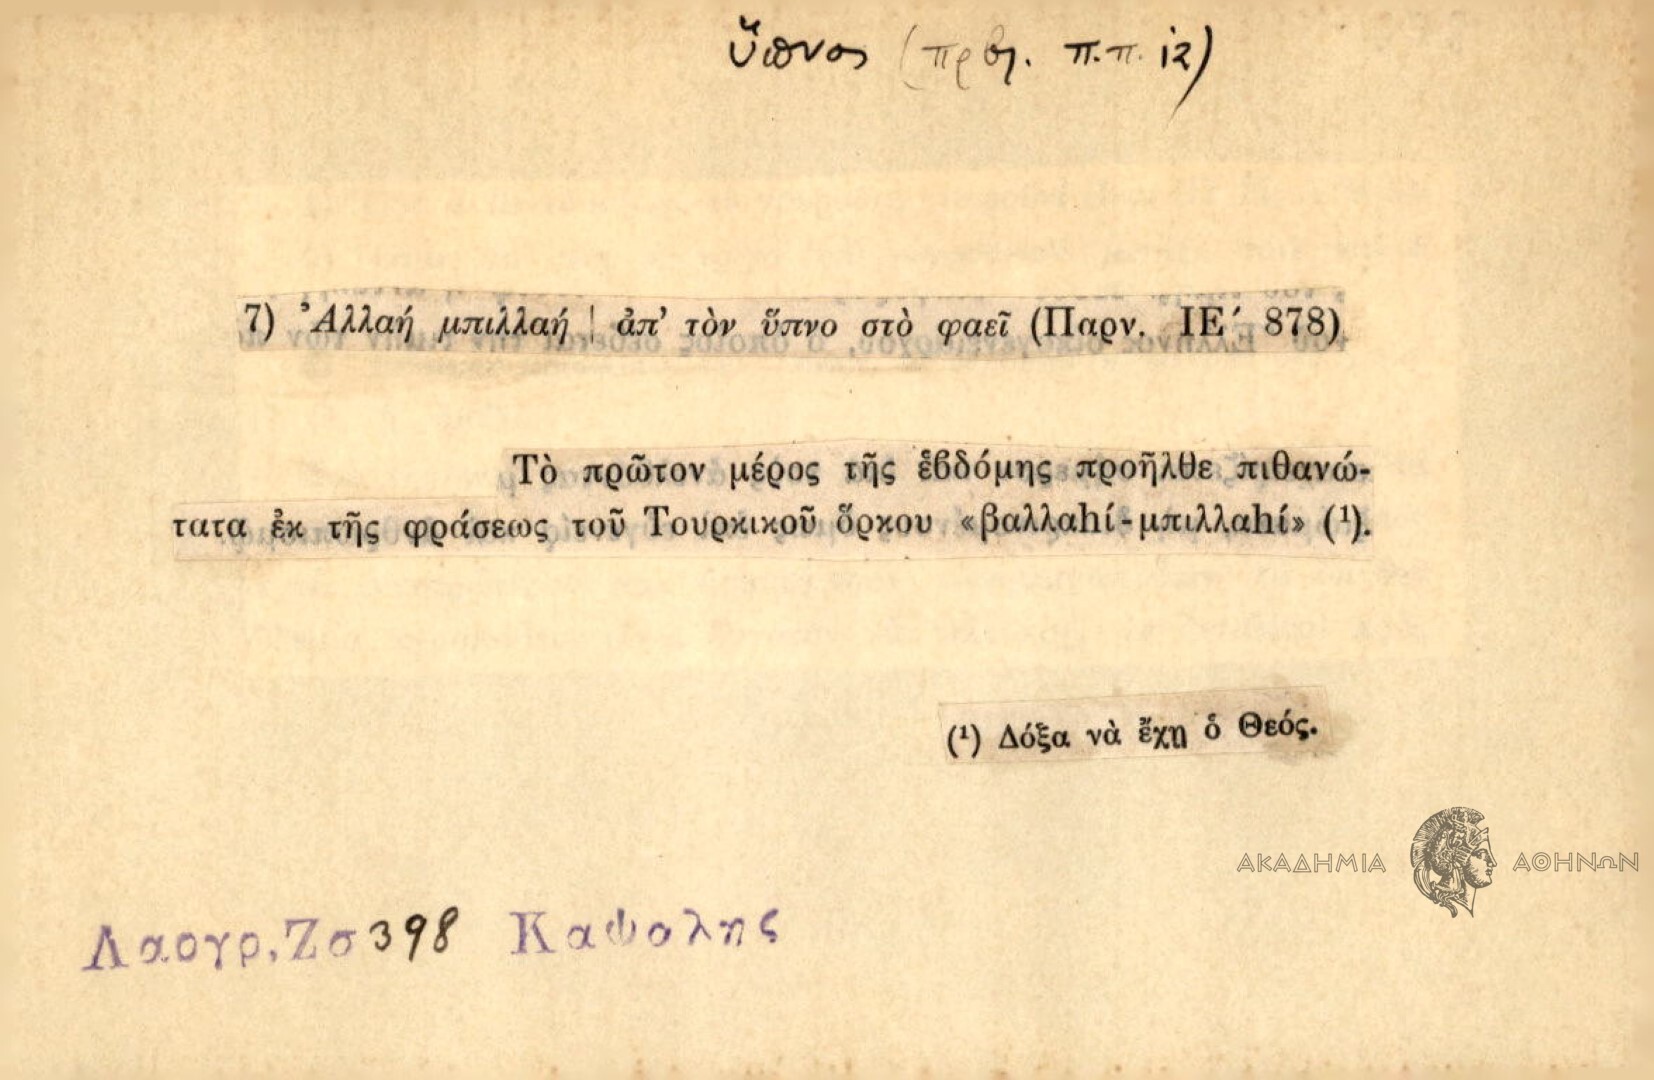 ὕπνος (πρβλ. π.π. 12)
7) Ἀλλαή μπιλλαή ! ἀπ’ τὸν ὕπνο στὸ φαεῖ (Παρν. ΙΕ΄ 878)
Τὸ πρῶτον μέρος τῆς ἑβδόμης προῆλθε πιθανώ-
τατα ἐκ τῆς φράσεως τοῦ Τουρκικοῦ ὅρκου «βαλλαhί-μπιλλαhί» (¹).
(¹) Δόξα νὰ ἔχῃ ὁ Θεός.
ΑΚΑΔΗΜΙΑ ΑΘΗΝΩΝ
Λαογρ. Ζσ 398 Καψαλης